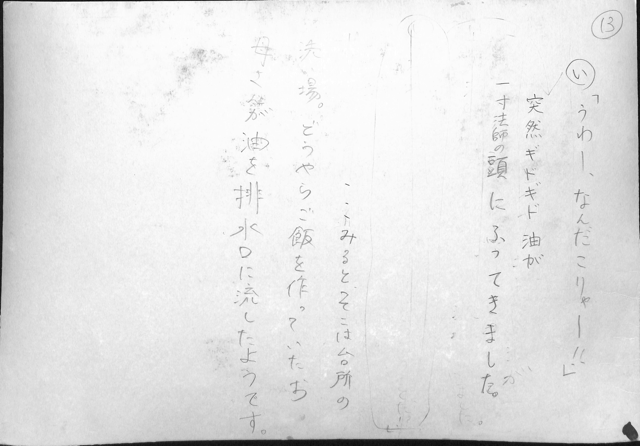 13
い「うわー、なんだこりゃー!!」
突然ギトギト油が
一寸法師の頭にふってきました。
みるとそこは台所の
洗い場。どうやらご飯を作っていたお
母さんが油を排水口に流したようです。